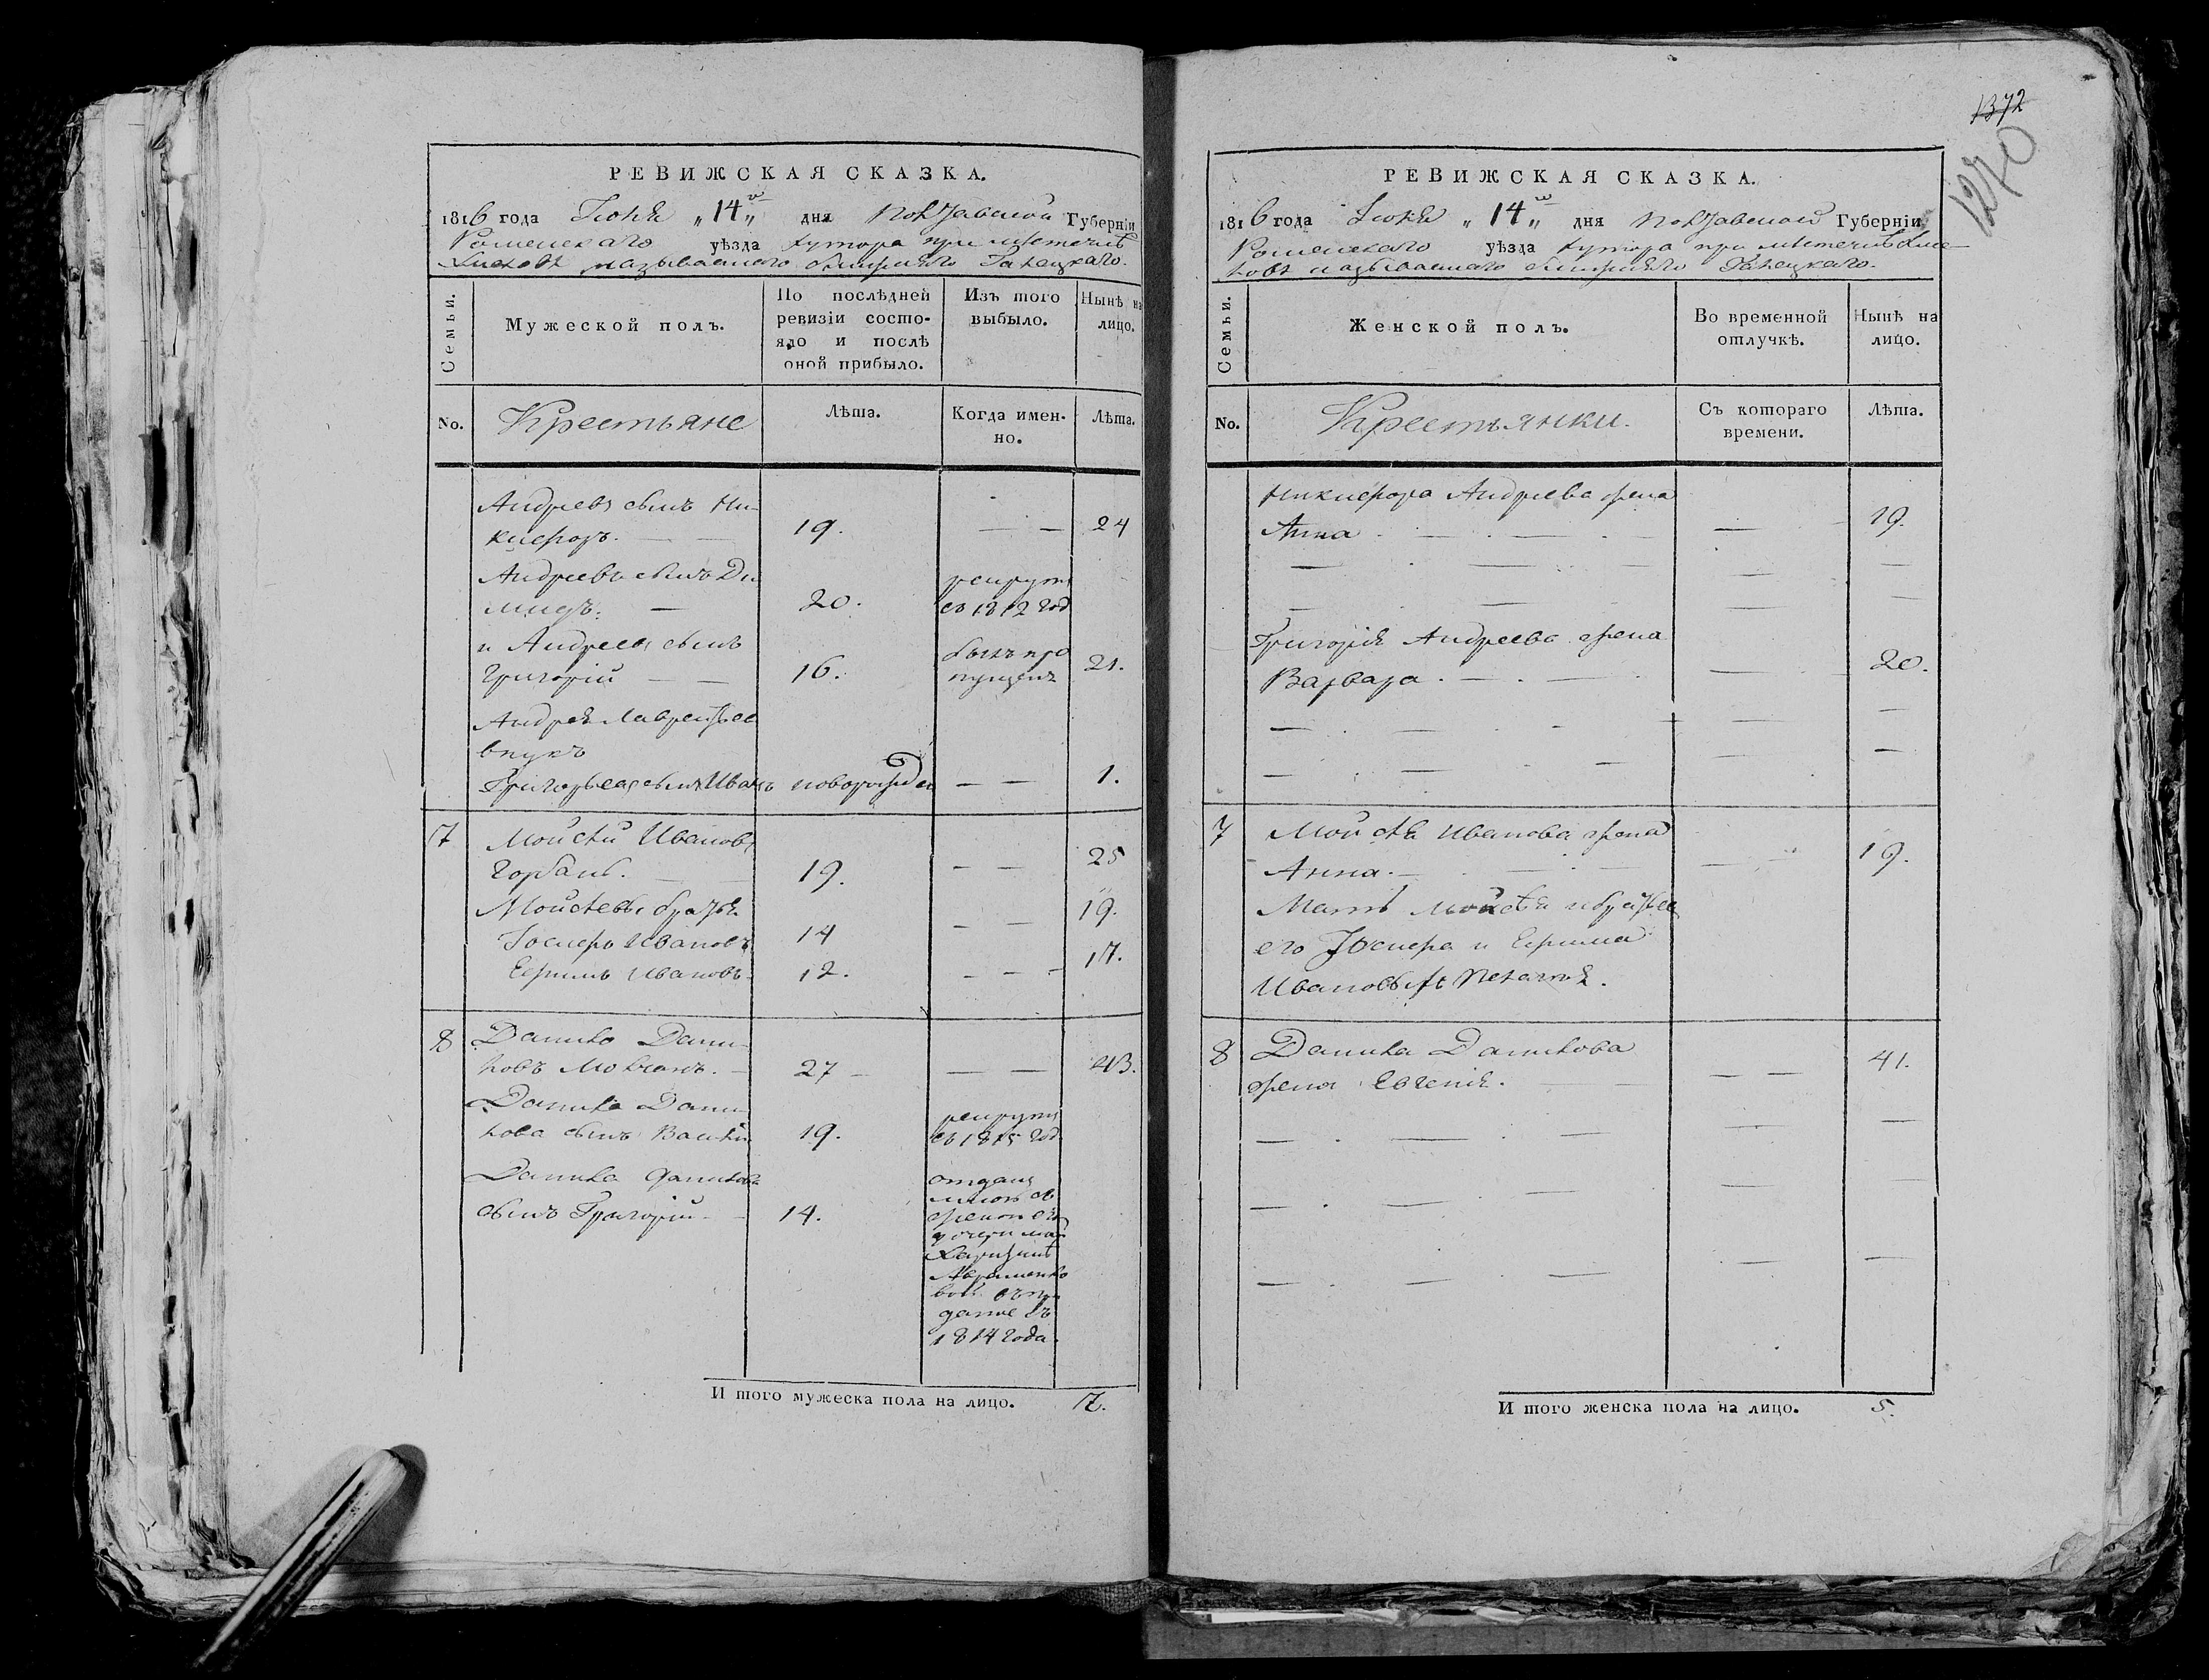 РЕВИЖСКАЯ СКАЗКА.
1816 года Іюня „14„ го дня Полтавской Губерніи
Роменскаго уѣзда хутора при местечкѣ
называемого Ганецкаго.
Семьи.
Мужеской полъ.
По послѣдней ревизіи состояло и послѣ оной прибыло.
Изъ того выбыло.
Нынѣ на лицо.
No.
Крестьяне
Лѣта.
Когда именно.
Лѣта.
Андреевъ сынъ Ни-
кифоръ. — — 19. — — 24
Андреевъ сынъ Ди рекрутъ
мидъ. — 20. въ 1812 год
и Андреевъ сынъ былъ про
Григорій — — 16. пущенъ 21.
Андрея Лаврентьев
внукъ
Григорьевъ сынъ Иванъ новорожден — — 1.
7 Мойсей Ивановъ 25
Горбань. — — 19. — —
Мойсеевы братья 19.
Іосифъ Ивановъ 14 — —
Ефимъ Ивановъ 12. — — — 17.
8 Данило Дани-
ловъ Мовчанъ. — 27 — — — 43.
Данила Дани- рекрутъ
лова сынъ Василій 19. въ 1815 год
Данила Данилова отданъ
сынъ Григорій — — 14. мною съ
женою его
дочери моей
Авраменко
вой въ при
даное въ
1814 года.
И того мужеска пола на лицо. 7.
1372
1270
РЕВИЖСКАЯ СКАЗКА.
1816 года Іюня „14„ го дня Полтавской Губерніи
Роменскаго уѣзда хутора при местечкѣ
называемого Ганецкаго.
Семьи.
Женской полъ.
Во временной отлучкѣ.
Нынѣ на лицо.
No.
Крестьянки.
Съ котораго времени.
Лѣта.
Никифора Андреева жена
Анна 19.
Григорія Андреева жена
Варвара. 20.
7 Мойсѣя Иванова жена
Анна. 19.
Мать Мойсѣя и братьев
его Іосифа и Ефима
Ивановых
8 Данила Данилова
жена Евгенія. 41.
И того женска пола на лицо. 5.